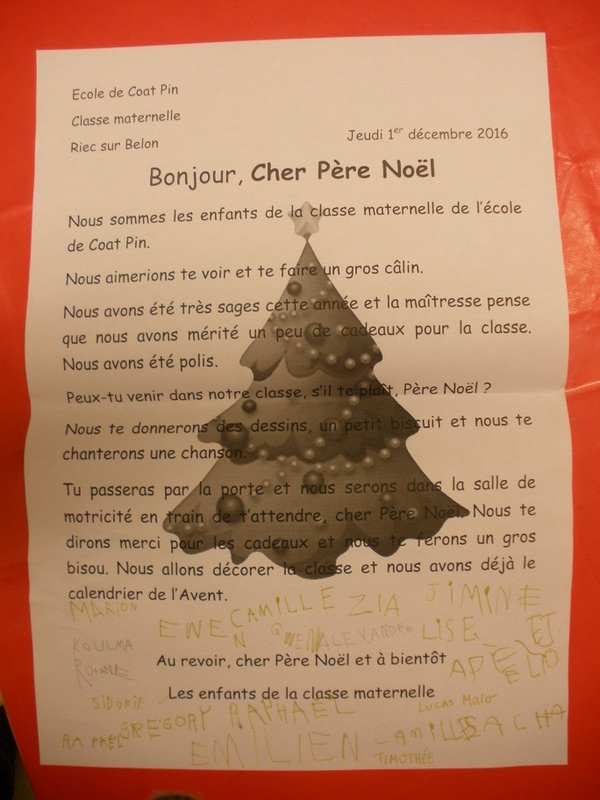 Ecole de Coat Pin
Classe maternelle
Riec sur Belon
Jeudi 1er décembre 2016
Bonjour, Cher Père Noël
Nous sommes les enfants de la classe maternelle de l'école
de Coat Pin.
Nous aimerions te voir et te faire un gros câlin.
Nous avons été très sages cette année et la maîtresse pense
que nous avons mérité un peu de cadeaux pour la classe.
Nous avons été polis.
Peux-tu venir dans notre classe, s'il te plaît, Père Noël ?
Nous te donnerons des dessins, un petit biscuit et nous te
chanterons une chanson.
Tu passeras par la porte et nous serons dans la salle de
motricité en train de t'attendre, cher Père Noël. Nous te
dirons merci pour les cadeaux et nous te ferons un gros
bisou. Nous allons décorer la classe et nous avons déjà le
calendrier de l'Avent.
MARION
EWEN
CAMILLE
ZIA
JIMINE
GWENN
ALEXANDRE
LISE
KOULMA
Au revoir, cher Père Noël et à bientôt
Les enfants de la classe maternelle
SIDONIE
GREGORY
RAPHAEL
LUCAS Malo
RAPAEL
EMILIEN
CAMILLE
SACHA
TIMOTHÉE